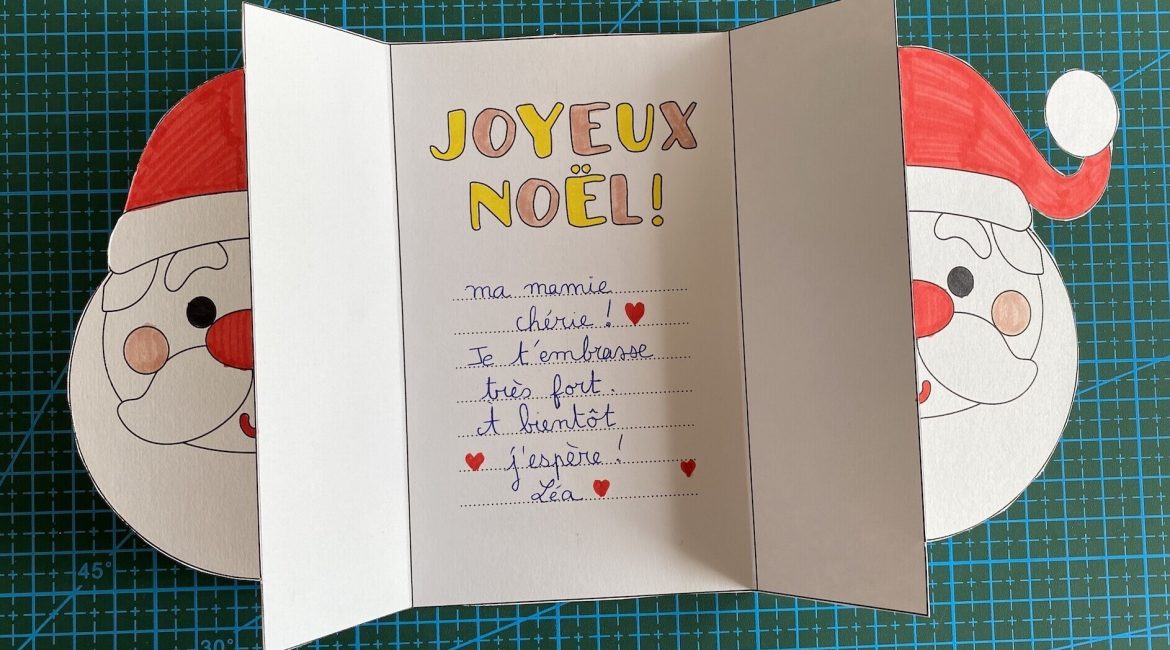 JOYEUX
NOËL!
ma mamie
chérie !
Je t'embrasse
très fort.
A bientôt
j'espère !
Léa
45°
30°